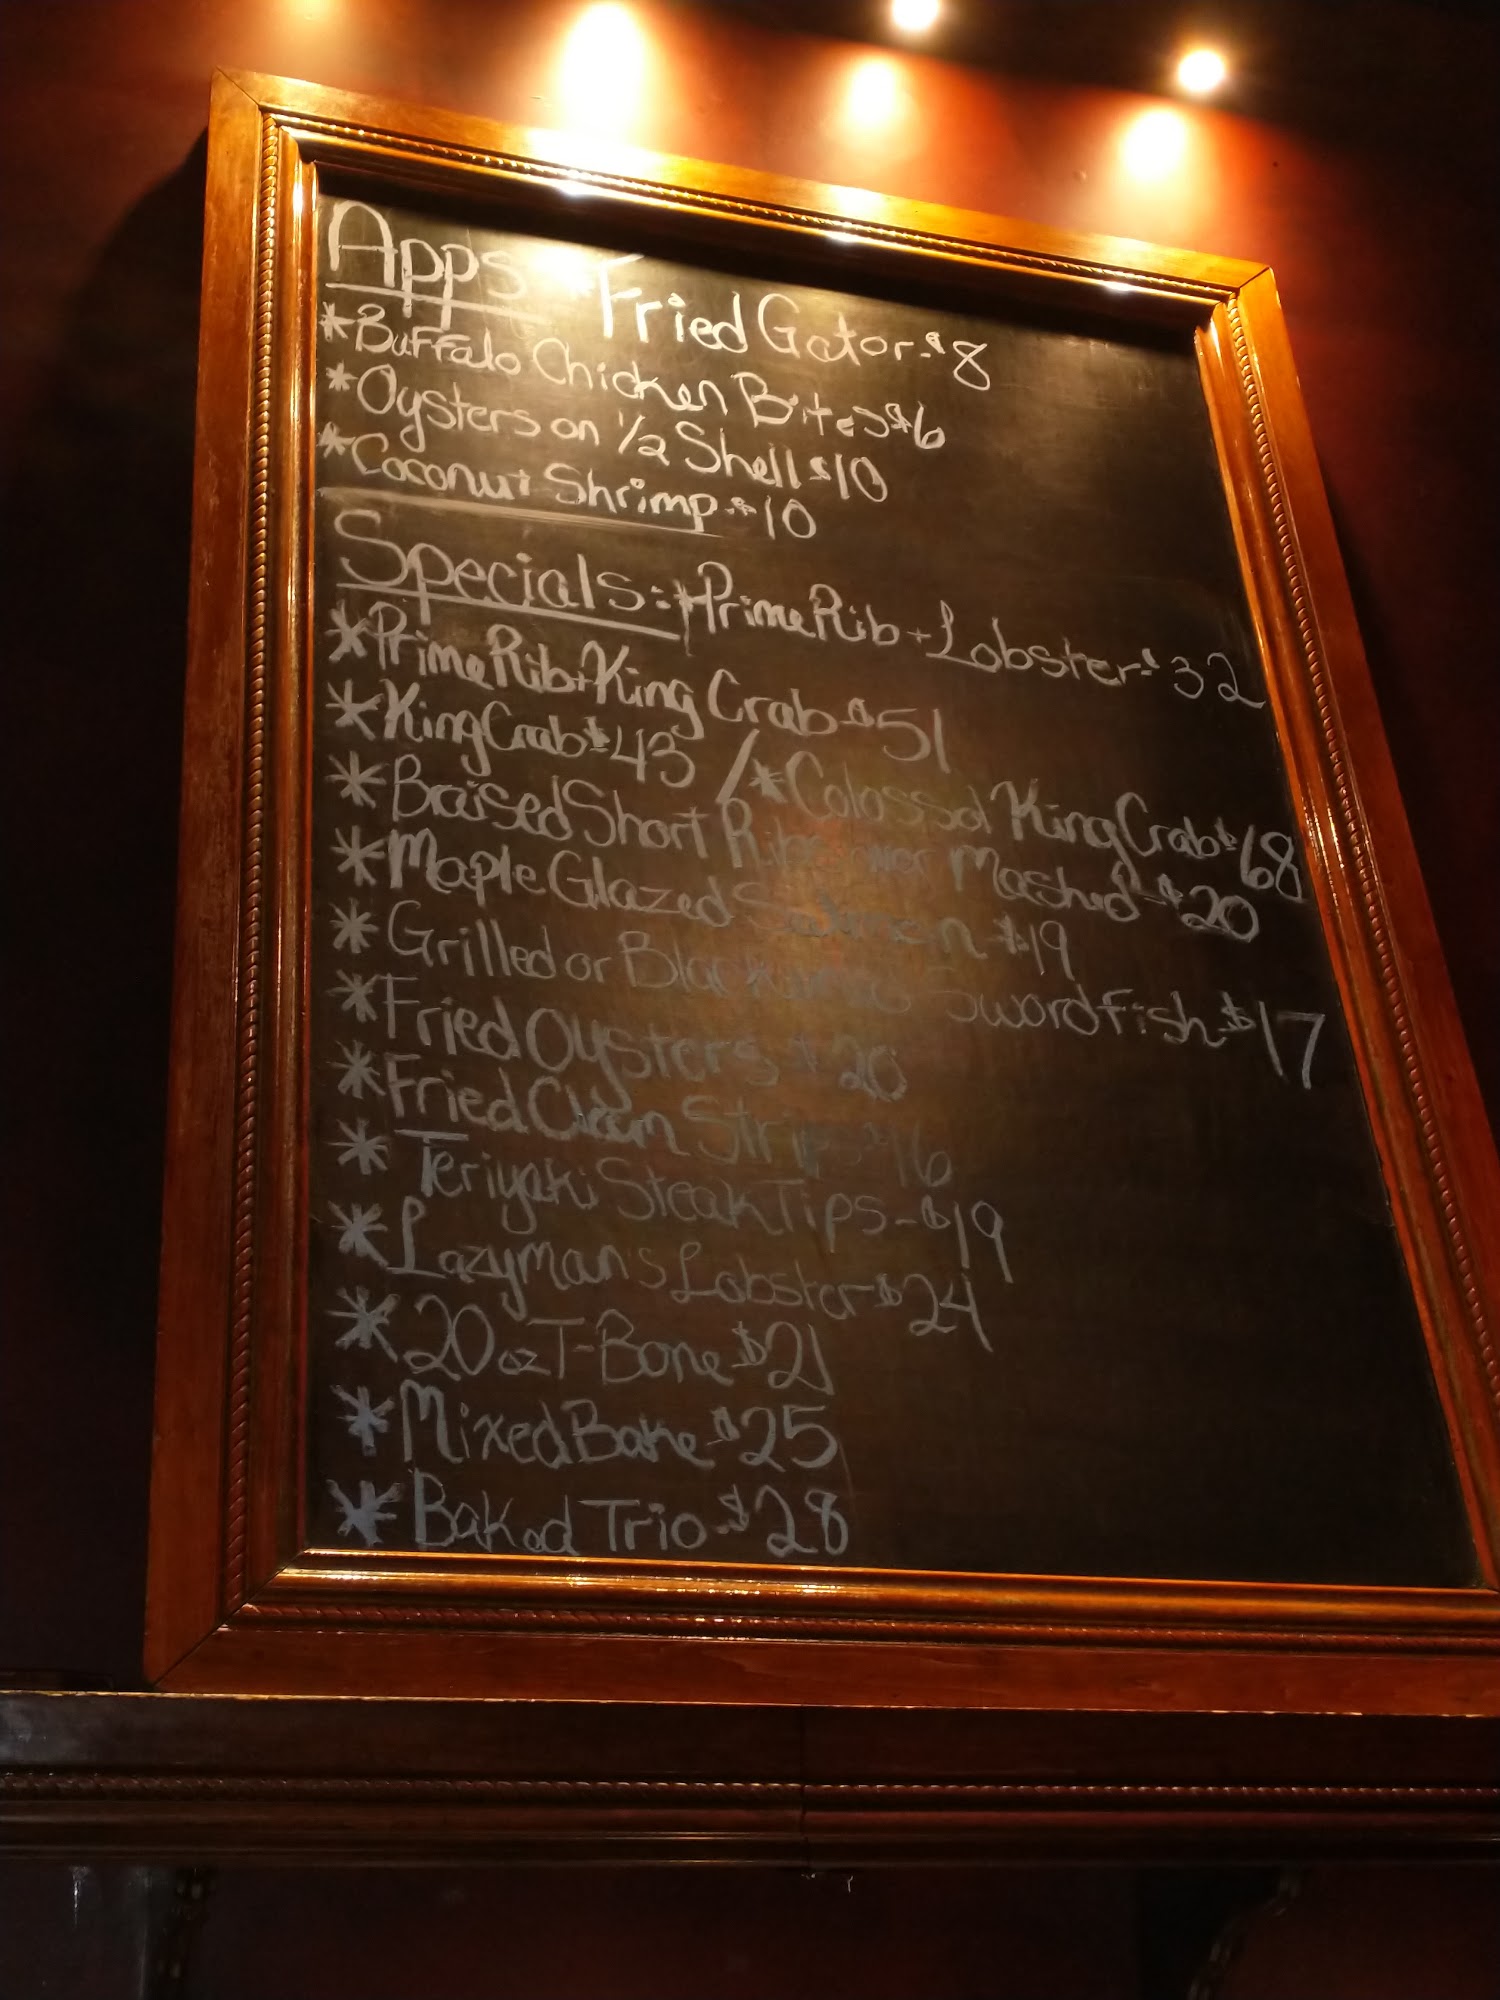 Apps * Fried Gator - $8
* Buffalo Chicken Bites $6
* Oysters on 1/2 Shell $10
* Coconut Shrimp - $10
Specials: * Prime Rib + Lobster - $32
* Prime Rib + King Crab - $51
* King Crab $43 / * Colossal King Crab $68
* Braised Short Rib over Mashed - $20
* Maple Glazed Salmon - $19
* Grilled or Blackened Swordfish - $17
* Fried Oysters $20
* Fried Clam Strips $16
* Teriyaki Steak Tips - $19
* Lazyman's Lobster - $24
* 20oz T-Bone $21
* Mixed Bake - $25
* Baked Trio - $28